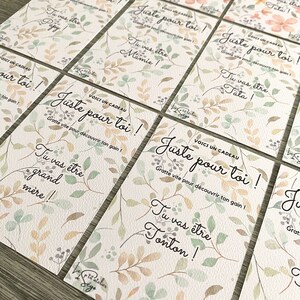 Juste pour toi !
Tu vas être
Juste pour toi !
Tu vas être
Mamie
Juste pour toi !
Tu vas être
Tata !
VOICI UN CADEAU
Juste pour toi !
Gratte vite pour découvrir ton gain !
Tu vas être
grand
mère !
VOICI UN CADEAU
Juste pour toi !
Gratte vite pour découvrir ton gain !
Tu vas être
Tonton !